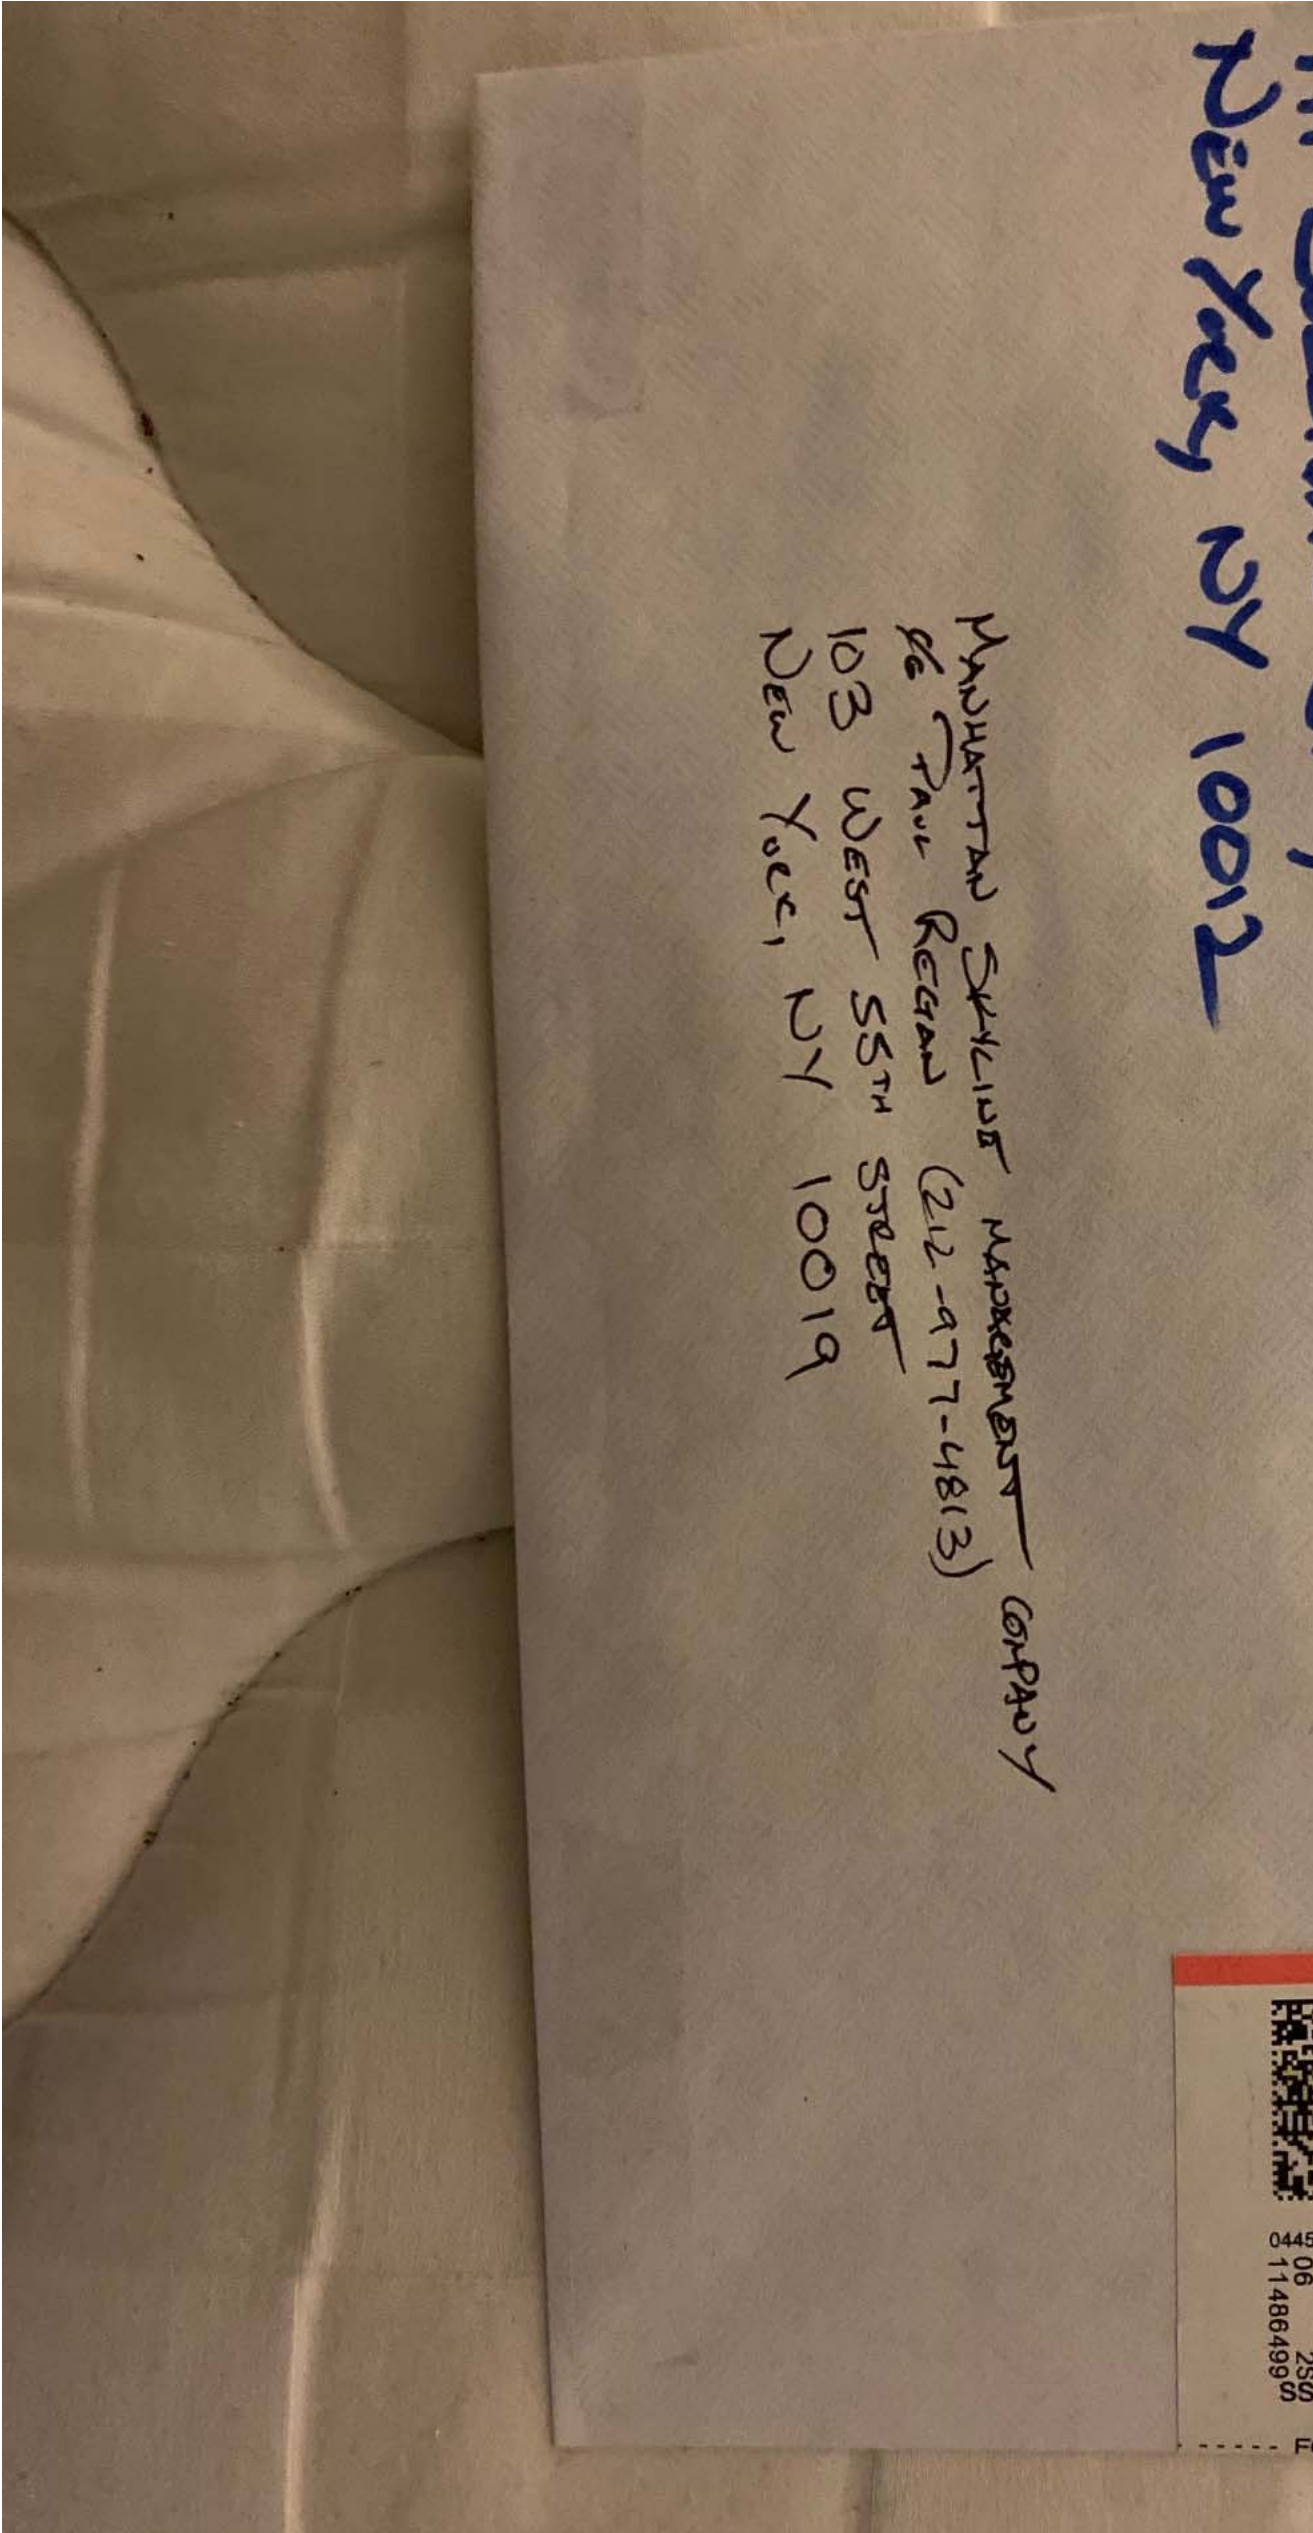 New York, NY 10012
MANHATTAN SKYLINE MANAGEMENT COMPANY
c/o PAUL REGAN (212-977-4813)
103 WEST 55TH STREET
NEW YORK, NY 10019
0445
06 2S
11486499